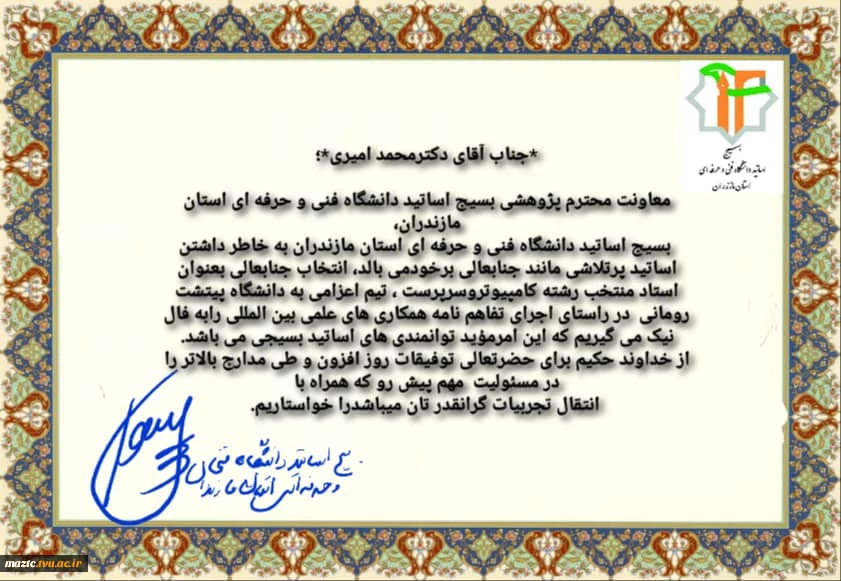 بسیج
اساتید دانشگاه فنی و حرفه ای
استان مازندران
*جناب آقای دکترمحمد امیری*؛
معاونت محترم پژوهشی بسیج اساتید دانشگاه فنی و حرفه ای استان
مازندران،
بسیج اساتید دانشگاه فنی و حرفه ای استان مازندران به خاطر داشتن
اساتید پرتلاشی مانند جنابعالی برخودمی بالد، انتخاب جنابعالی بعنوان
استاد منتخب رشته کامپیوتروسرپرست ، تیم اعزامی به دانشگاه پیتشت
رومانی در راستای اجرای تفاهم نامه همکاری های علمی بین المللی رابه فال
نیک می گیریم که این امرمؤید توانمندی های اساتید بسیجی می باشد.
از خداوند حکیم برای حضرتعالی توفیقات روز افزون و طی مدارج بالاتر را
در مسئولیت مهم پیش رو که همراه با
انتقال تجربیات گرانقدر تان میباشدرا خواستاریم.
بسیج اساتید دانشگاه فنی
و حرفه ای استان مازندران
maztc.tvu.ac.ir